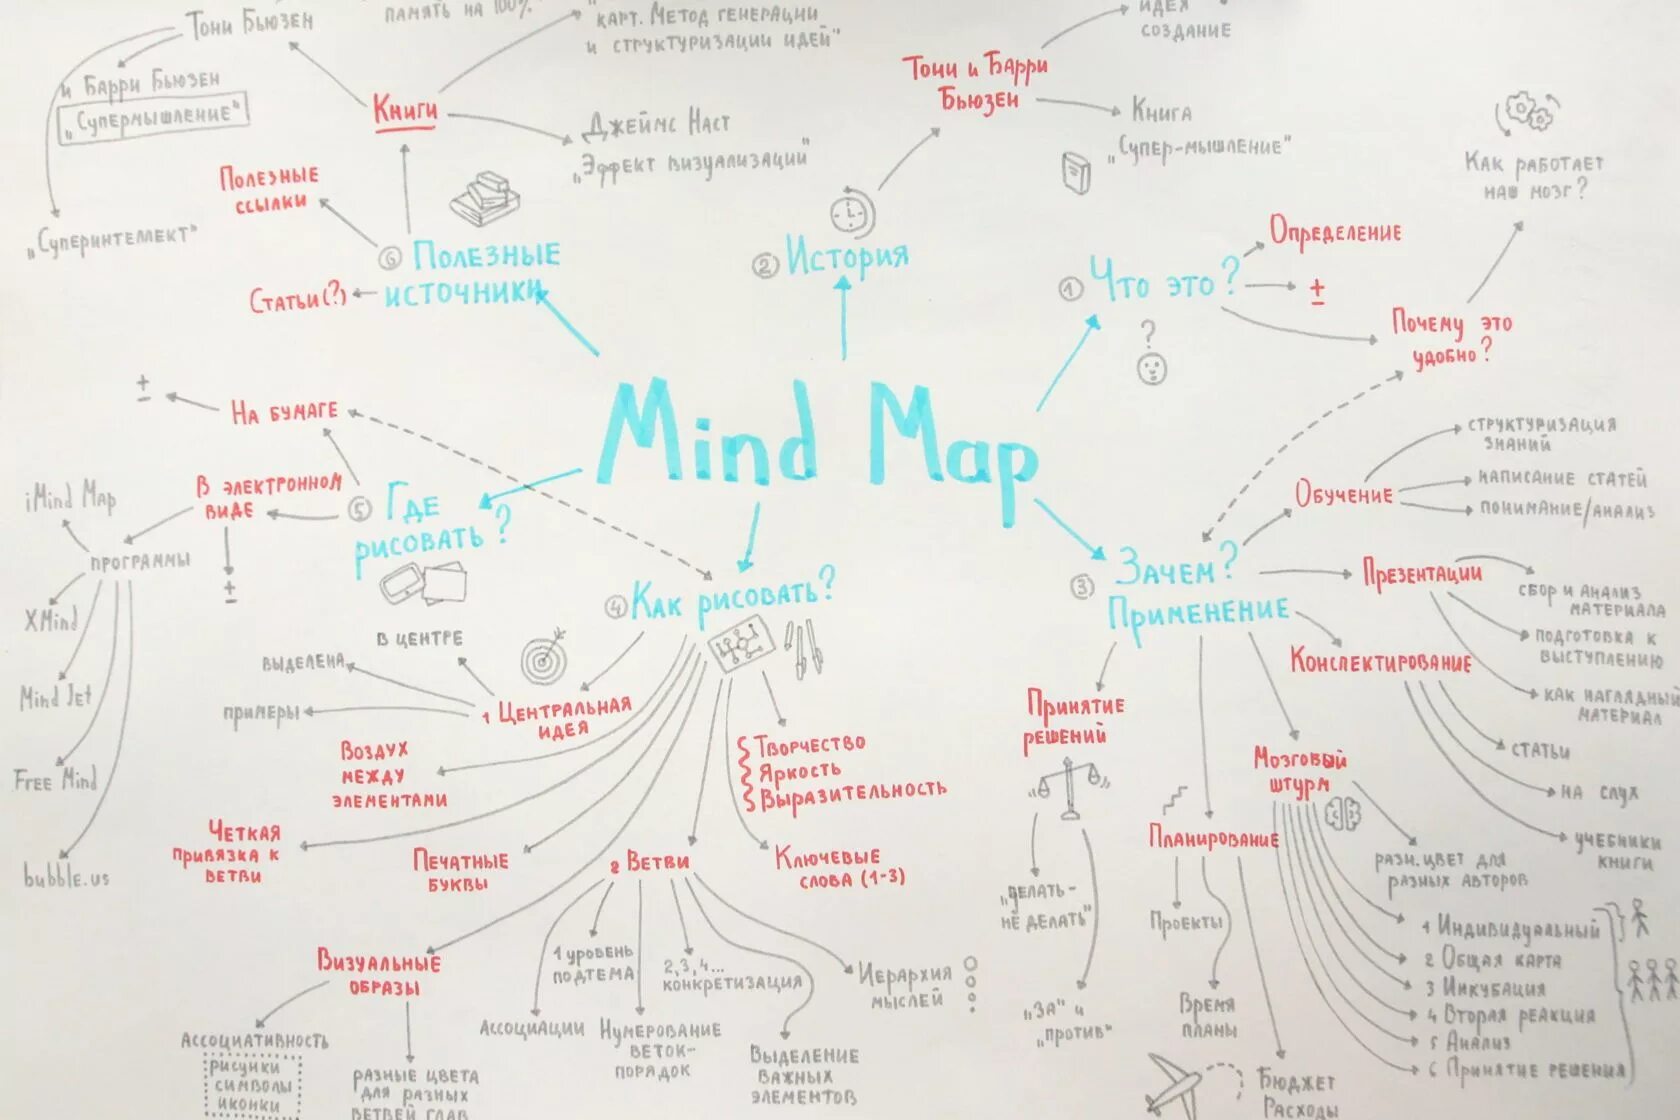 Mind Map
① Что это?
Определение
±
Почему это
удобно?
Как работает
наш мозг?
② История
Тони и Барри
Бьюзен
идея
создание
Книга
„Супер-мышление"
③ Зачем?
Применение
Обучение
структуризация
знаний
написание статей
понимание/анализ
Презентации
сбор и анализ
материала
подготовка к
выступлению
как наглядный
материал
Конспектирование
статьи
на слух
учебники
книги
Мозговый
штурм
разн. цвет для
разных авторов
1 Индивидуальный
2 Общая карта
3 Инкубация
4 Вторая реакция
5 Анализ
6 Принятие решения
Планирование
Проекты
Время
планы
Бюджет
Расходы
Принятие
решений
„делать-
не делать"
„за" и
„против"
④ Как рисовать?
1 Центральная
идея
в центре
выделена
примеры
Воздух
между
элементами
Четкая
привязка к
ветви
Печатные
буквы
Визуальные
образы
Ассоциативность
рисунки
символы
иконки
разные цвета
для разных
ветвей глав
2 Ветви
Ассоциации
1 уровень
подтема
Нумерование
веток-
порядок
2,3,4...
конкретизация
Выделение
важных
элементов
Иерархия
мыслей
Ключевые
слова (1-3)
Творчество
Яркость
Выразительность
⑤ Где
рисовать?
На бумаге
±
В электронном
виде
±
программы
iMind Map
XMind
Mind Jet
Free Mind
bubble.us
⑥ Полезные
источники
Статьи(?)
Полезные
ссылки
Книги
Тони Бьюзен
и Барри Бьюзен
„Супермышление"
„Суперинтеллект"
память на 100%
карт. Метод генерации
и структуризации идей"
Джеймс Наст
„Эффект визуализации"